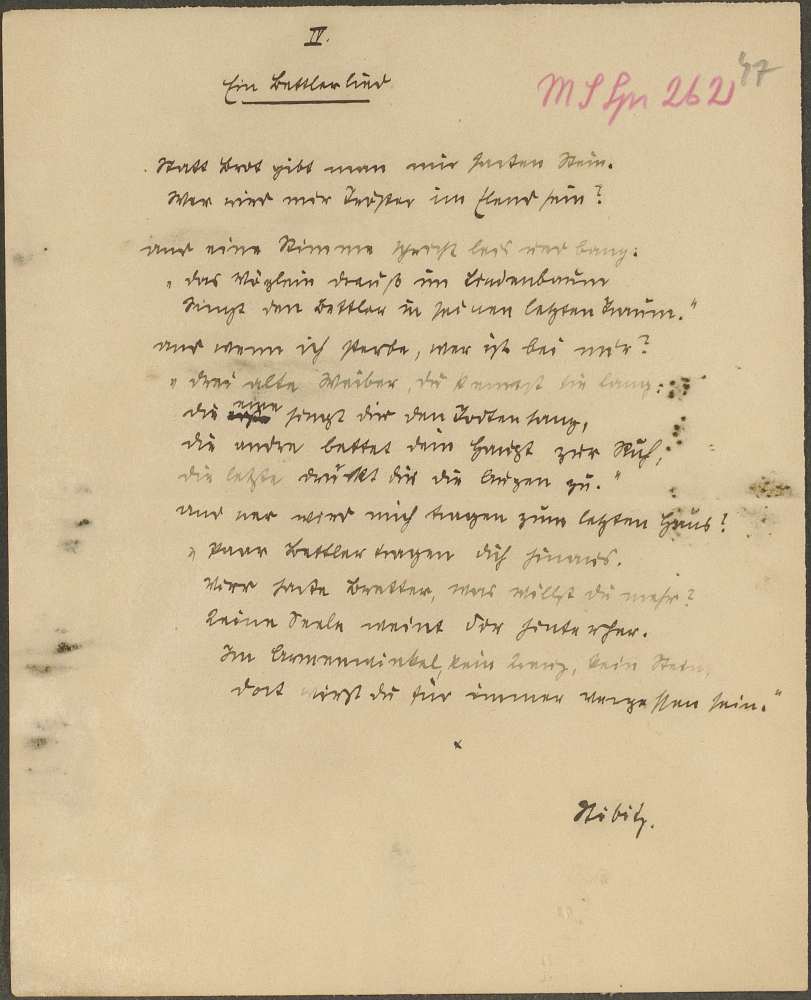 IV.
Ein Bettlerlied
MS Lpr 262
47
Statt Brot gibt man mir harten Stein.
Wer wird mir Tröster im Elend sein?
und eine Stimme spricht leis und bang:
„das Vöglein drauß im Lindenbaum
singt den Bettler in seinen letzten Traum.“
und wenn ich sterbe, wer ist bei mir?
„drei alte Weiber, du kennst sie lang:
die eine singt dir den Todtensang,
die andre bettet dein Haupt zur Ruh,
die letzte drückt dir die Augen zu.“
und wer wird mich tragen zum letzten Haus?
„Paar Bettler tragen dich hinaus.
Vier harte Bretter, was willst du mehr?
Keine Seele weint dir hinterher.
Im Armenwinkel, kein Kreuz, kein Stein,
dort wirst du für immer vergessen sein.“
x
Stibitz.